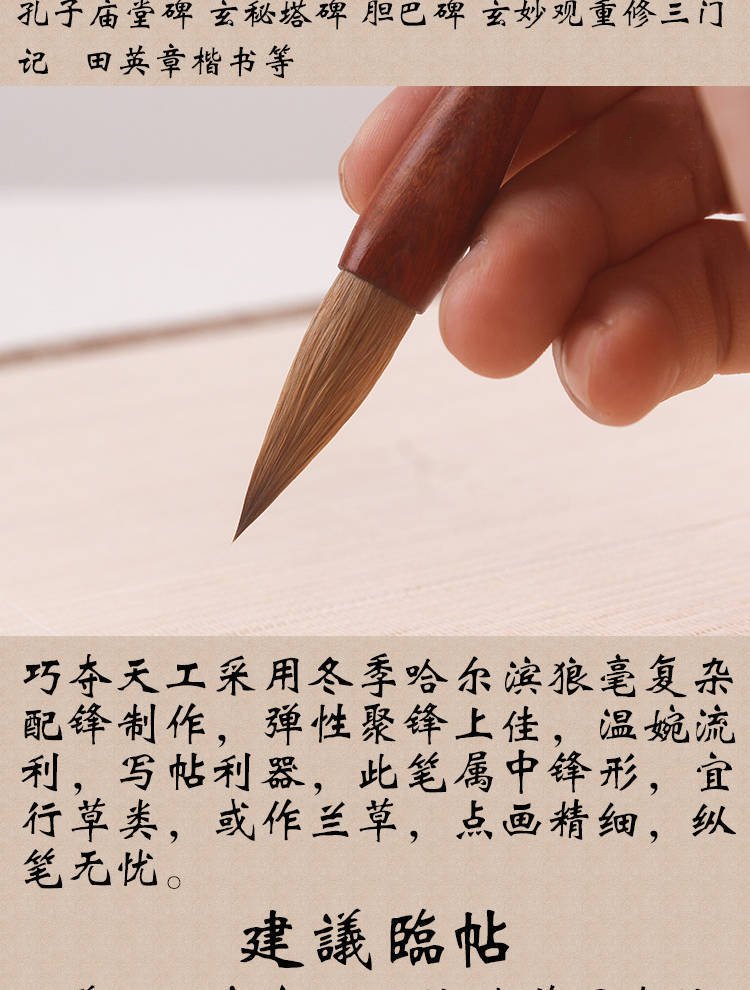 孔子庙堂碑 玄秘塔碑 胆巴碑 玄妙观重修三门
记 田英章楷书等
巧夺天工采用冬季哈尔滨狼毫复杂
配锋制作，弹性聚锋上佳，温婉流
利，写帖利器，此笔属中锋形，宜
行草类，或作兰草，点画精细，纵
笔无忧。
建議臨帖